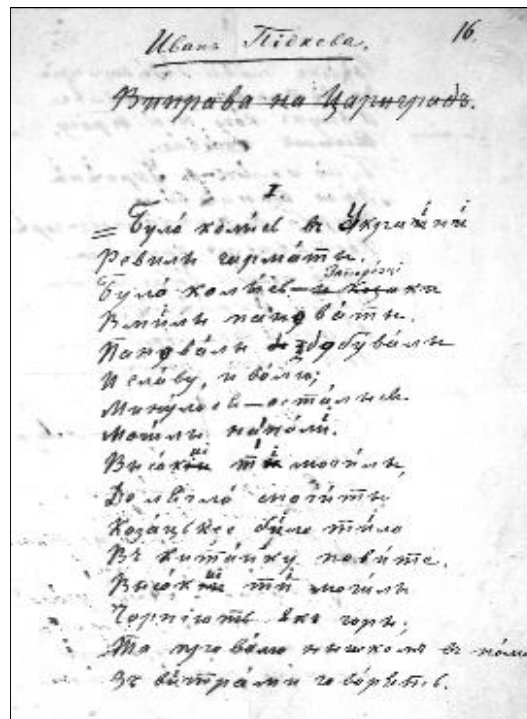 16.
Иванъ Підкова.
Виправа на Цариградъ.
I
Було колись въ Украйині
Ревилы гарматы.
Було колысь — и козаки
Запорожці
Вмилы пановаты.
Пановалы здобувалы
И славу, и волю;
Минулося — осталыся
Могилы на полі.
Высокиі ті могилы,
Де лягло спочиты
Козацькее било тило
Въ китайку повите.
Высокиі ті могилы
Чорніють якъ горы,
Та про волю нышкомъ въ полі
Зъ витрами говорять.